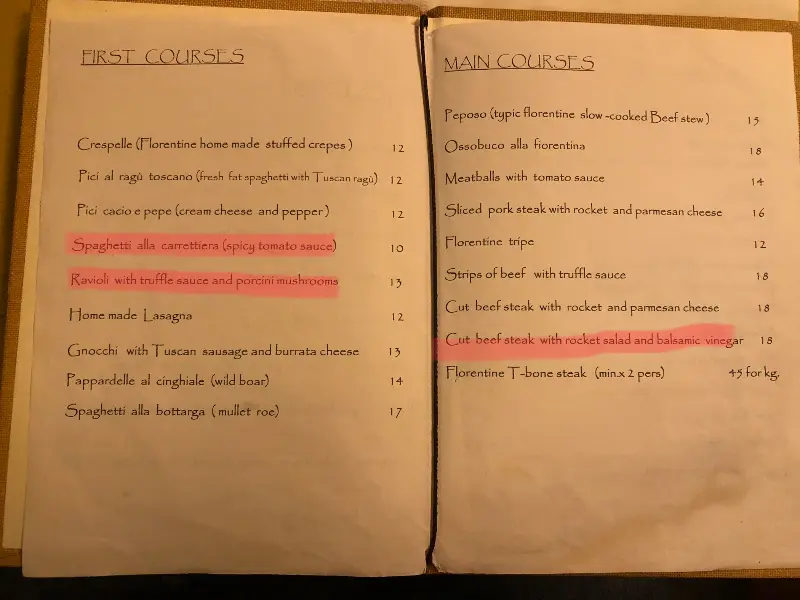 FIRST COURSES
Crespelle (Florentine home made stuffed crepes)
12
Pici al ragù toscano (fresh fat spaghetti with Tuscan ragù)
12
Pici cacio e pepe (cream cheese and pepper)
12
Spaghetti alla carrettiera (spicy tomato sauce)
10
Ravioli with truffle sauce and porcini mushrooms
13
Home made Lasagna
12
Gnocchi with Tuscan sausage and burrata cheese
13
Pappardelle al cinghiale (wild boar)
14
Spaghetti alla bottarga (mullet roe)
17
MAIN COURSES
Peposo (typic florentine slow-cooked Beef stew)
15
Ossobuco alla fiorentina
18
Meatballs with tomato sauce
14
Sliced pork steak with rocket and parmesan cheese
16
Florentine tripe
12
Strips of beef with truffle sauce
18
Cut beef steak with rocket and parmesan cheese
18
Cut beef steak with rocket salad and balsamic vinegar
18
Florentine T-bone steak (min.x 2 pers)
45 for kg.